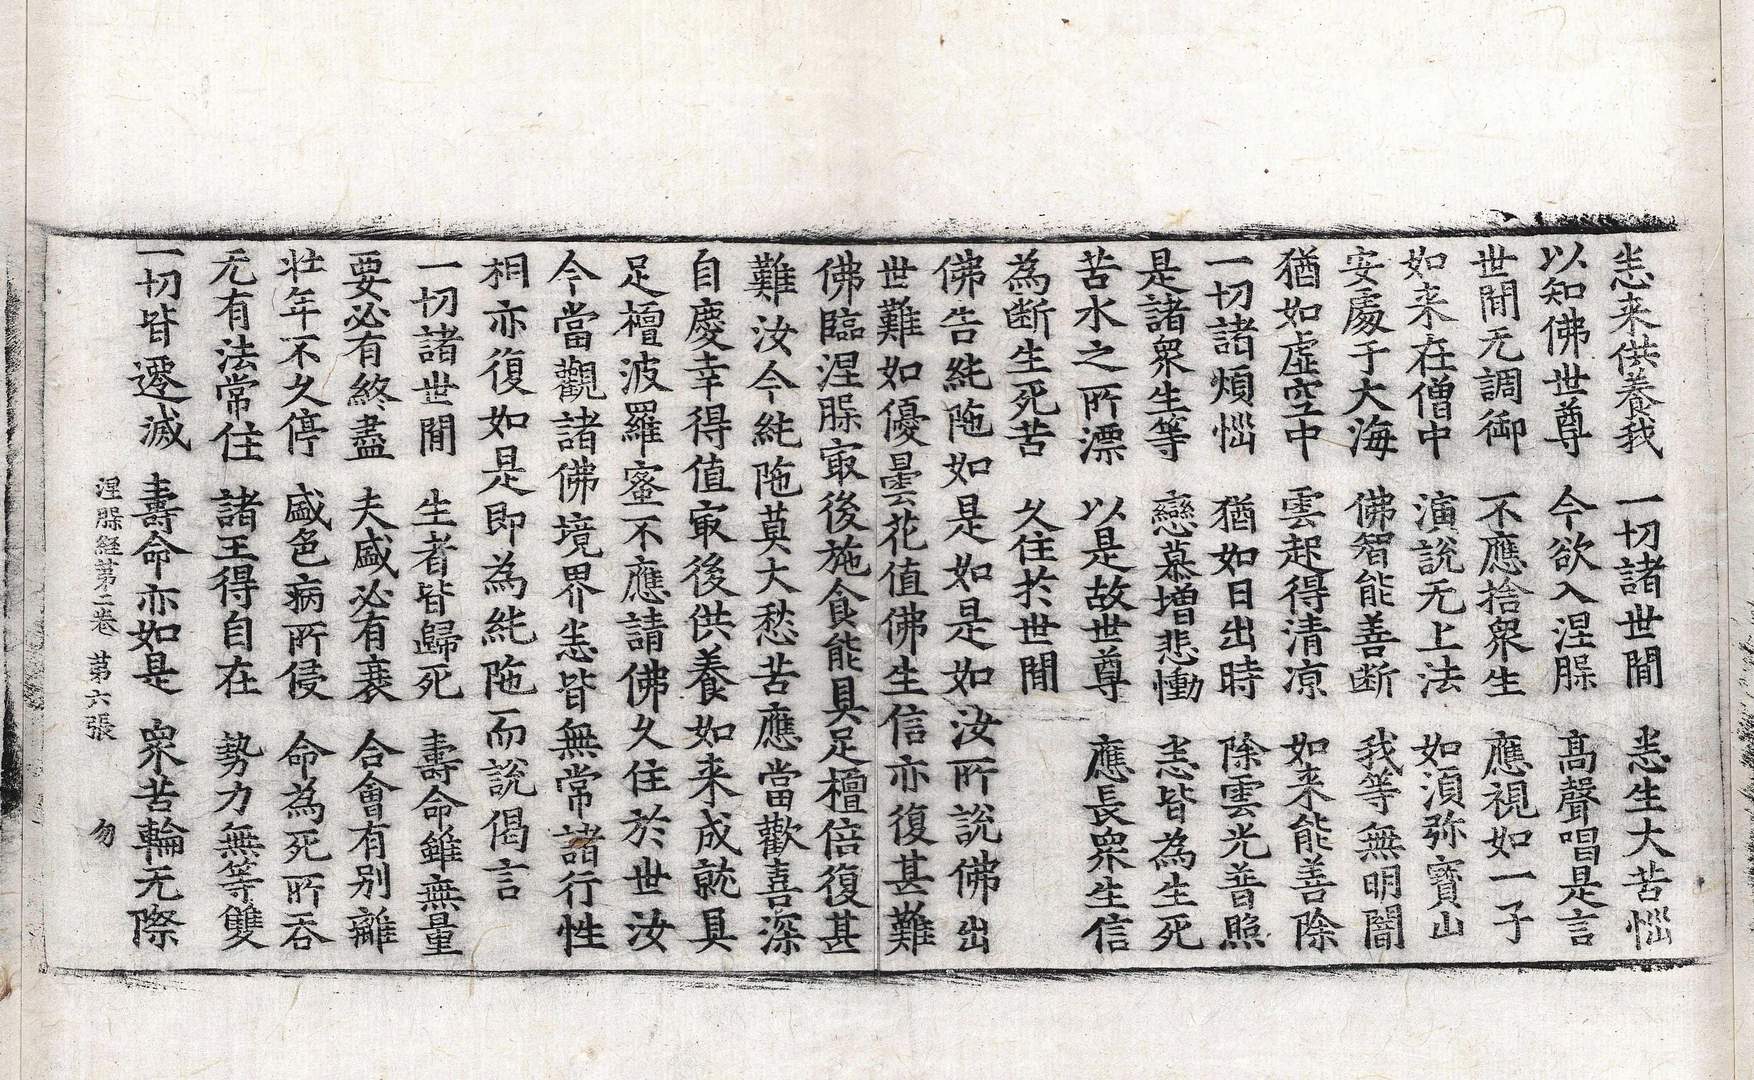 恙来供養我　一切諸世間　恙生大苦惱
以知佛世尊　今欲入涅槃　高聲唱是言
世間无調御　不應捨衆生　應視如一子
如来在僧中　演說无上法　如湏弥寶山
安處于大海　佛智能善断　我等無明闇
猶如虛空中　雲起得清凉　如来能善除
一切諸煩惱　猶如日出時　除雲光普照
是諸衆生等　戀慕增悲慟　恙皆為生死
苦水之所漂　以是故世尊　應長衆生信
為断生死苦　久住於世間
佛告純陁如是如是如汝所說佛出
世難如優曇花值佛生信亦復甚難
佛臨涅槃㝡後施食能具足檀倍復甚
難汝今純陁莫大愁苦應當歡喜深
自慶幸得值㝡後供養如来成就具
足檀波羅蜜不應請佛久住於世汝
今當觀諸佛境界恙皆無常諸行性
相亦復如是即為純陁而說偈言
一切諸世間　生者皆歸死　壽命雖無量
要必有終盡　夫盛必有衰　合會有别離
壯年不久停　盛色病所侵　命為死所吞
无有法常住　諸王得自在　勢力無等雙
一切皆遷滅　壽命亦如是　衆苦輪无際
涅槃経第二卷　第六張　勿